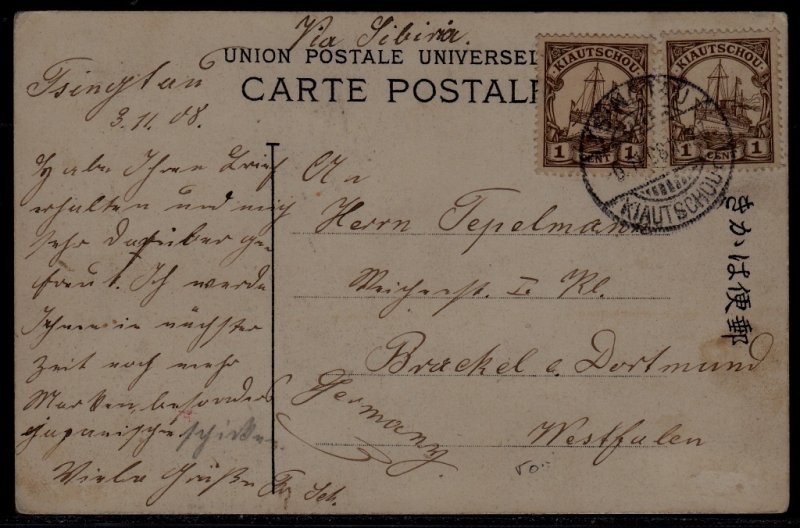 Via Sibiria.
UNION POSTALE UNIVERSELLE
CARTE POSTALE
KIAUTSCHOU
1 CENT 1
KIAUTSCHOU
1 CENT 1
KIAUTSCHOU
Tsingtau
3.11.08.
Habe Ihren Brief
erhalten und mich
sehr darüber ge
freut. Ich werde
Ihnen in nächster
Zeit noch mehr
Marken, besonders
japanische schicken
Viele Grüße
An
Herrn Tepelmann
Weichenst. I. Kl.
Brackel b. Dortmund
Germany
Westfalen
きかは便郵